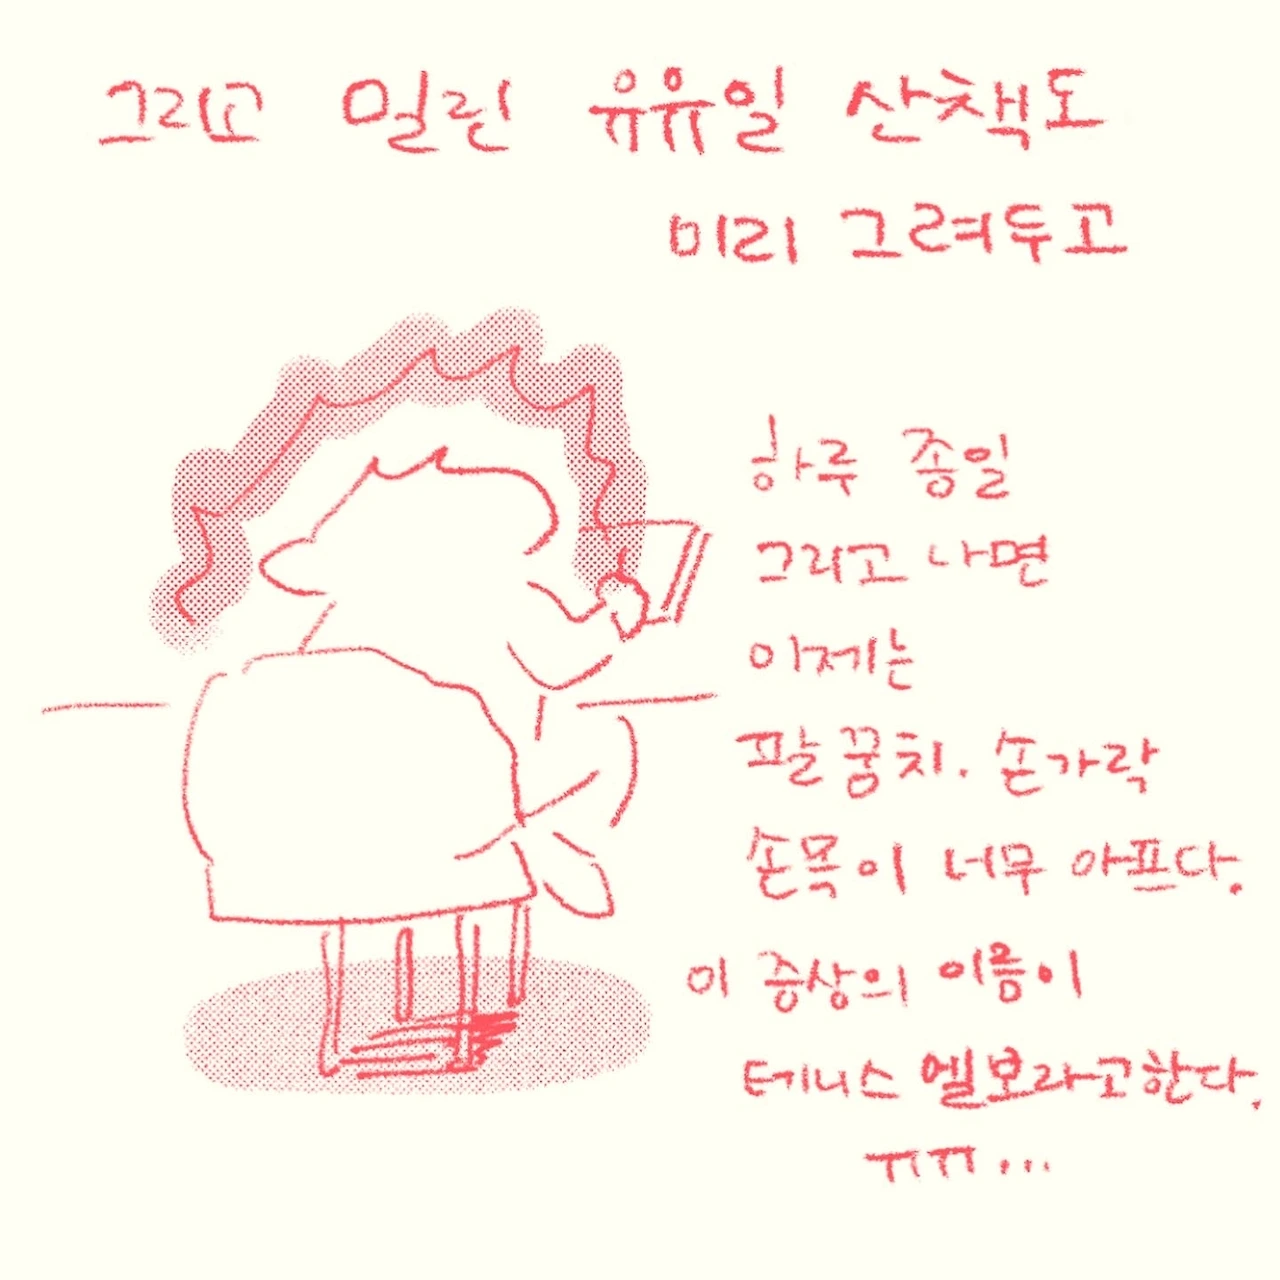 그리고 밀린 유유일 산책도
미리 그려두고
하루 종일
그리고 나면
이제는
팔꿈치. 손가락
손목이 너무 아프다.
이 증상의 이름이
테니스 엘보라고한다.
ㅠㅠ...